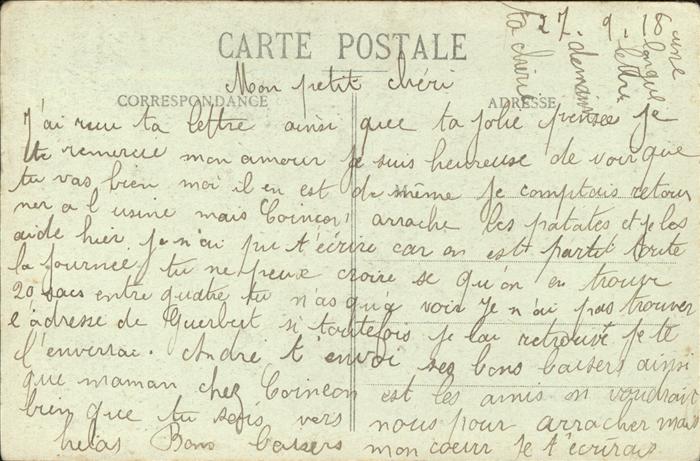 27. 9. 18
CARTE POSTALE
Mon petit chéri
CORRESPONDANCE
ADRESSE
J'ai recu ta lettre ainsi que ta jolie pensée je
te remercie mon amour je suis heureuse de voir que
tu vas bien moi il en est de même je comptais retour
ner a l'usine mais Coincon arrache les patates et je les
aide hier je n'ai pu t'écrire car on est parti toute
la journee tu ne peux croire se qu'on en trouve
20 sacs entre quatre tu n'as qu'a voir Je n'ai pas trouver
l'adresse de Guerbert si toutefois je lai retrouvé je te
l'enverrai. André t'envoi ses bons baisers ainsi
que maman chez Coincon est les amis on voudrait
bien que tu sois vers nous pour arracher mais
helas Bons baisers mon coeur Je t'écrirais
demain
une
longue
lettre
ta chérie